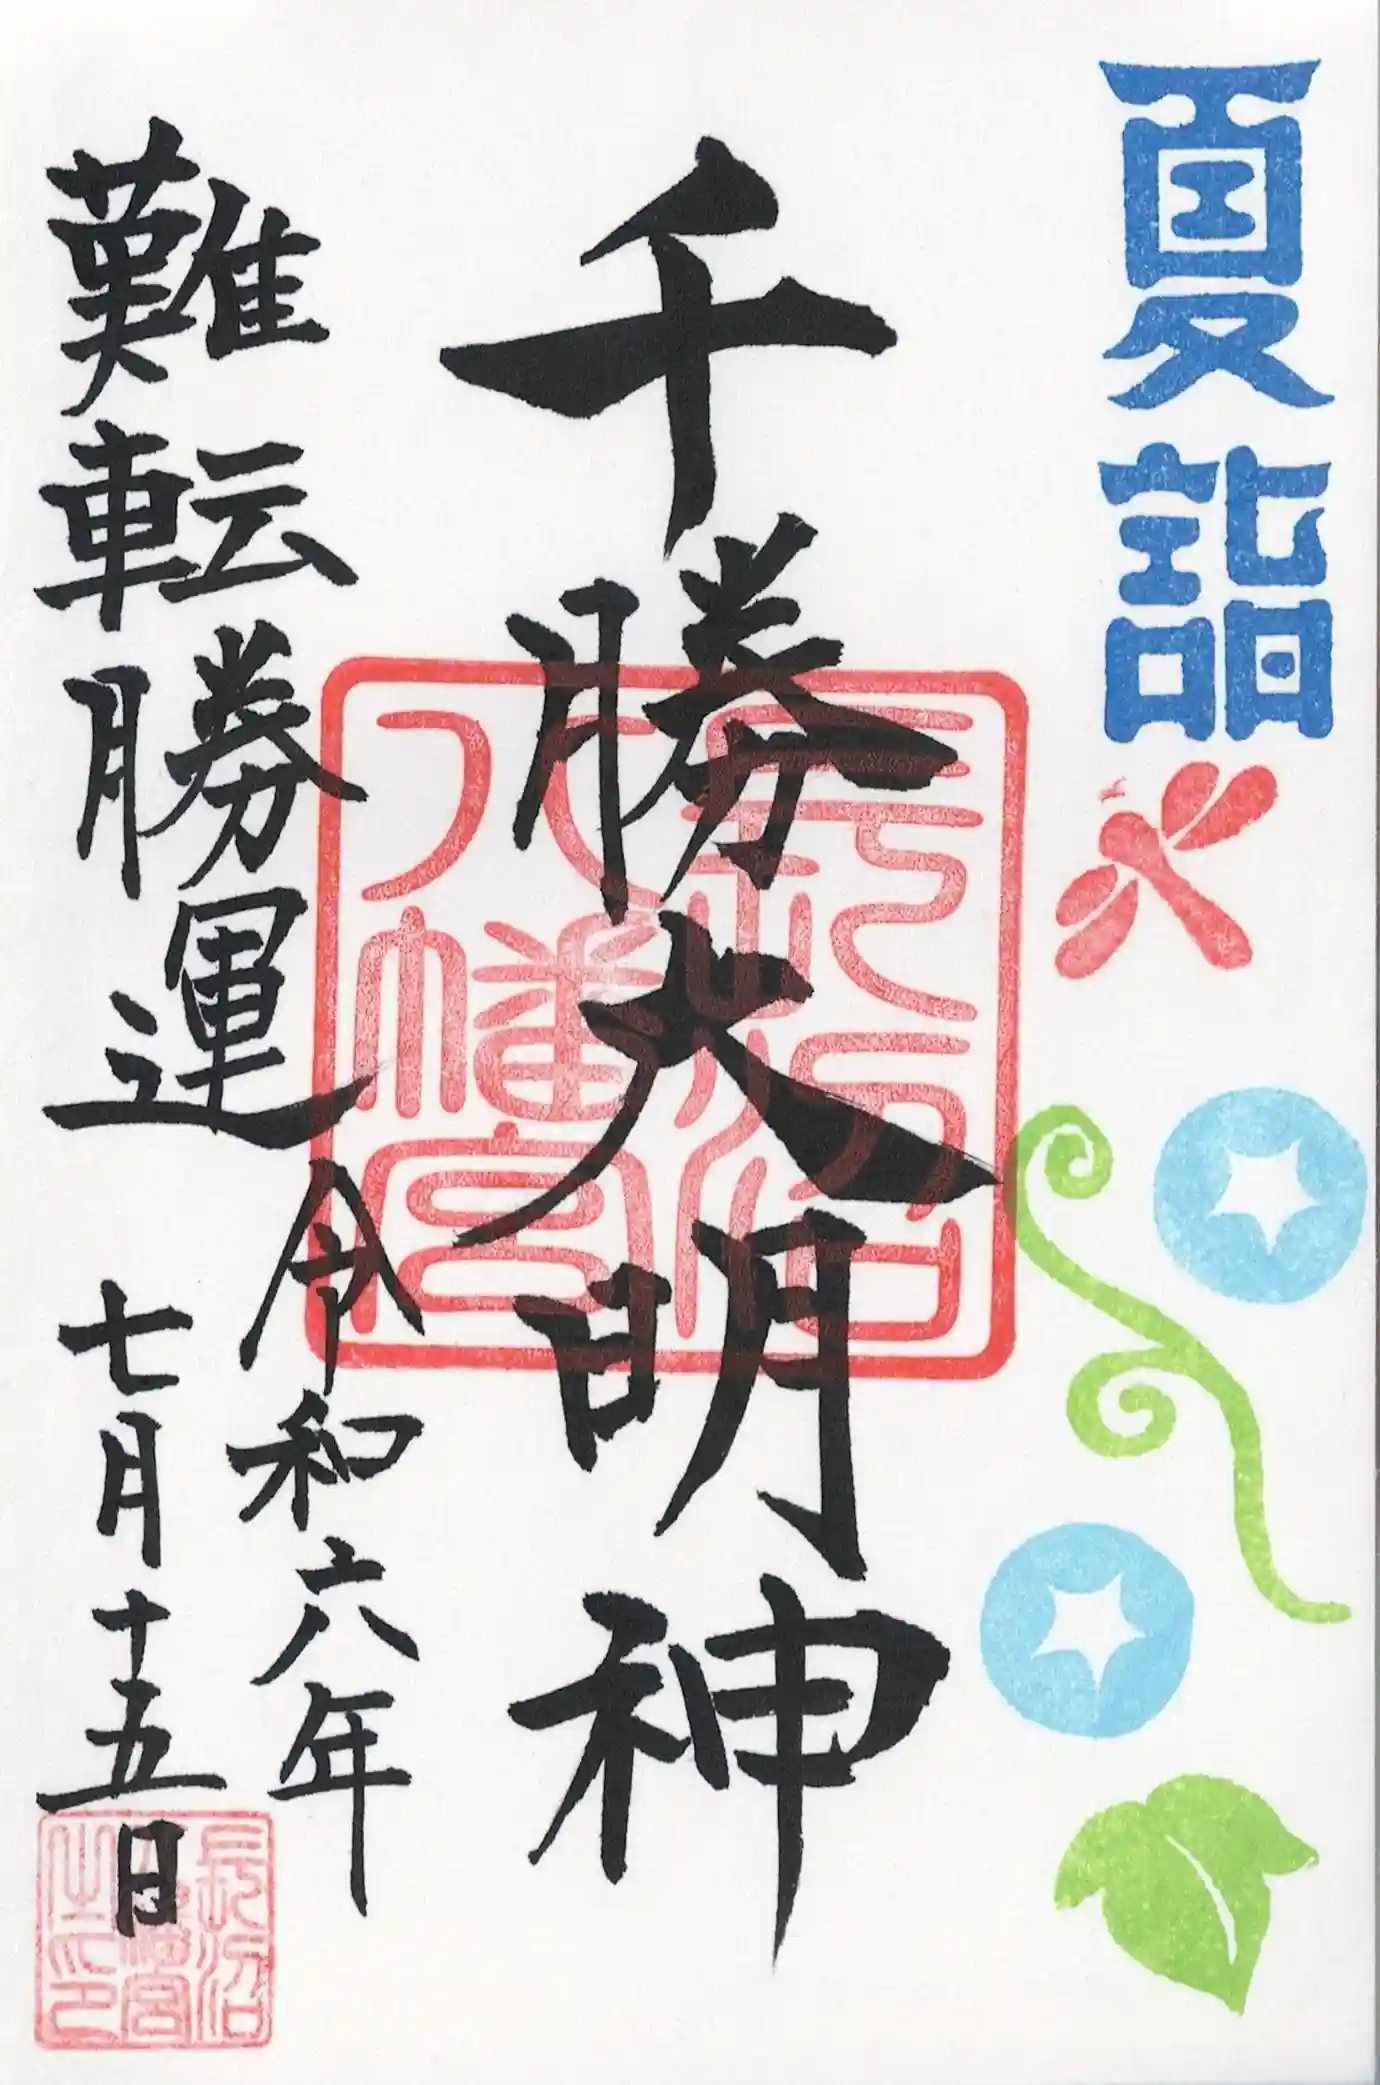 夏詣
千勝大明神
長沼八幡宮
難転勝運
令和六年
七月十五日
長沼八幡宮之印